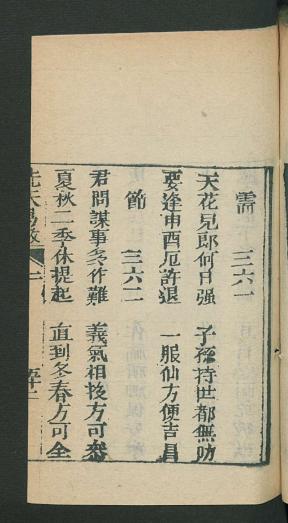 需 三六一
天花兒郎何日强 子孫持世都無妨
要逢申酉厄許退 一服仙方便吉昌
節 三六二
君問謀事多作難 義氣相投方可叅
夏秋二季休提起 直到冬春方可全
先天易數 二